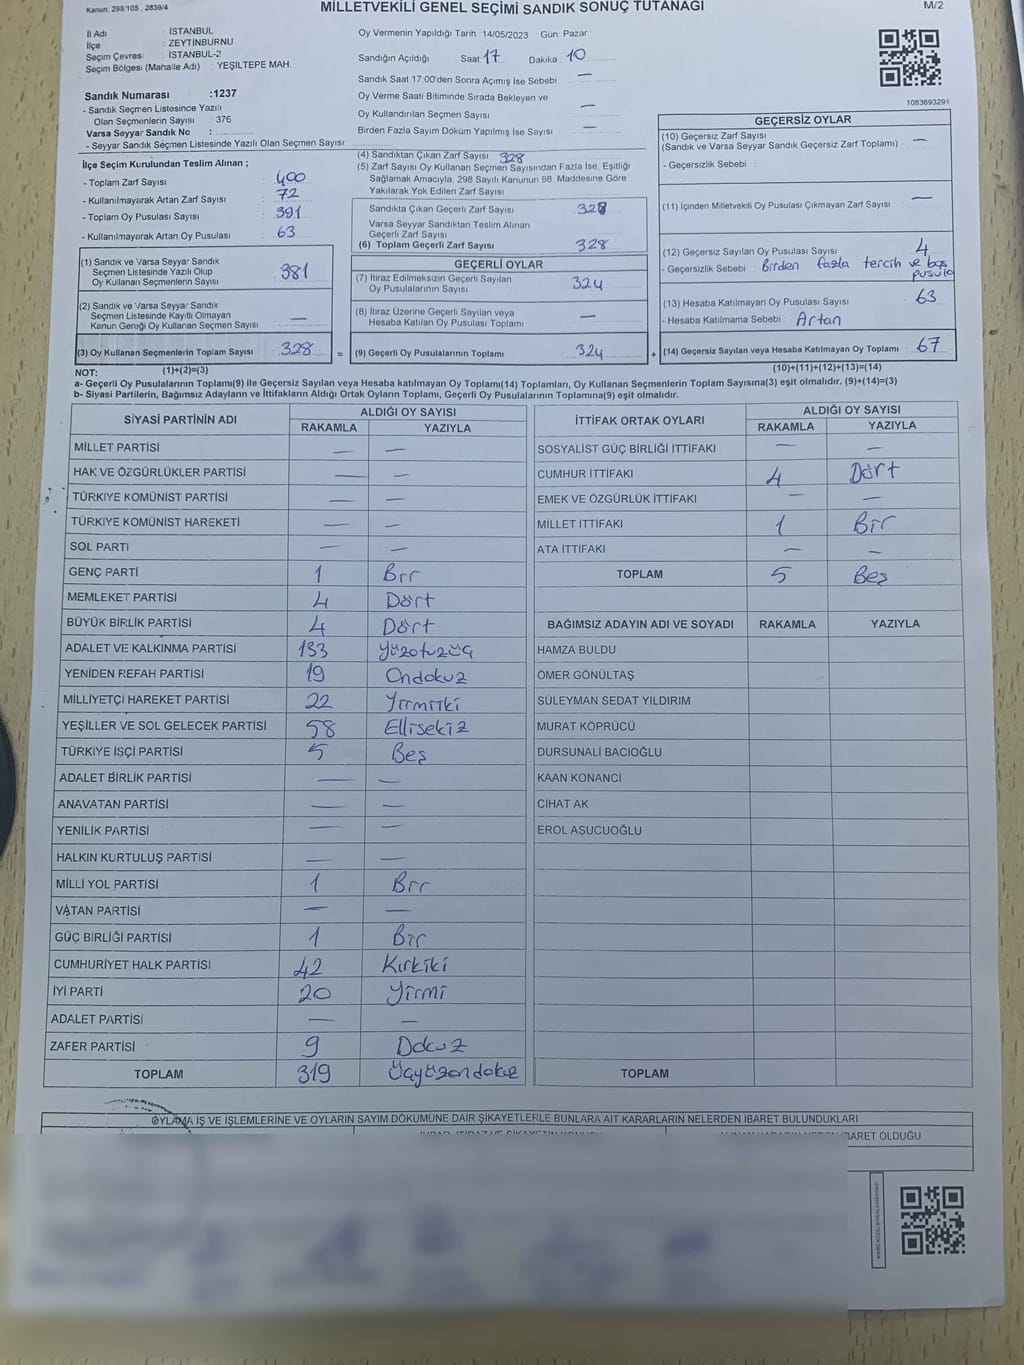 Kanun, 298/105 , 2839/4
MİLLETVEKİLİ GENEL SEÇİMİ SANDIK SONUÇ TUTANAĞI
M/2
İl Adı : İSTANBUL
İlçe : ZEYTİNBURNU
Seçim Çevresi : İSTANBUL-2
Seçim Bölgesi (Mahalle Adı) : YEŞİLTEPE MAH.
Oy Vermenin Yapıldığı Tarih :14/05/2023 Gün: Pazar
Sandığın Açıldığı Saat: 17 Dakika: 10
Sandık Saat 17:00'den Sonra Açımış İse Sebebi —
Oy Verme Saati Bitiminde Sırada Bekleyen ve
Oy Kullandırılan Seçmen Sayısı —
Birden Fazla Sayım Döküm Yapılmış İse Sayısı —
1083693291
Sandık Numarası :1237
- Sandık Seçmen Listesinde Yazılı
Olan Seçmenlerin Sayısı : 376
Varsa Seyyar Sandık No :
- Seyyar Sandık Seçmen Listesinde Yazılı Olan Seçmen Sayısı:
İlçe Seçim Kurulundan Teslim Alınan ;
- Toplam Zarf Sayısı : 400
- Kullanılmayarak Artan Zarf Sayısı : 72
- Toplam Oy Pusulası Sayısı : 391
- Kullanılmayarak Artan Oy Pusulası : 63
(1) Sandık ve Varsa Seyyar Sandık
Seçmen Listesinde Yazılı Olup
Oy Kullanan Seçmenlerin Sayısı : 381
(2) Sandık ve Varsa Seyyar Sandık
Seçmen Listesinde Kayıtlı Olmayan
Kanun Gereği Oy Kullanan Seçmen Sayısı : —
(3) Oy Kullanan Seçmenlerin Toplam Sayısı : 328
(4) Sandıktan Çıkan Zarf Sayısı : 328
(5) Zarf Sayısı Oy Kullanan Seçmen Sayısından Fazla İse, Eşitliği
Sağlamak Amacıyla, 298 Sayılı Kanunun 98. Maddesine Göre
Yakılarak Yok Edilen Zarf Sayısı
Sandıkta Çıkan Geçerli Zarf Sayısı 328
Varsa Seyyar Sandıktan Teslim Alınan
Geçerli Zarf Sayısı
(6) Toplam Geçerli Zarf Sayısı 328
GEÇERLİ OYLAR
(7) İtiraz Edilmeksizin Geçerli Sayılan
Oy Pusulalarının Sayısı : 324
(8) İtiraz Üzerine Geçerli Sayılan veya
Hesaba Katılan Oy Pusulası Toplamı : —
= (9) Geçerli Oy Pusulalarının Toplamı : 324
GEÇERSİZ OYLAR
(10) Geçersiz Zarf Sayısı
(Sandık ve Varsa Seyyar Sandık Geçersiz Zarf Toplamı) : —
- Geçersizlik Sebebi :
(11) İçinden Milletvekili Oy Pusulası Çıkmayan Zarf Sayısı : —
(12) Geçersiz Sayılan Oy Pusulası Sayısı : 4
- Geçersizlik Sebebi : Birden fazla tercih ve boş
pusula
(13) Hesaba Katılmayan Oy Pusulası Sayısı : 63
- Hesaba Katılmama Sebebi : Artan
+ (14) Geçersiz Sayılan veya Hesaba Katılmayan Oy Toplamı : 67
NOT: (1)+(2)=(3)
(10)+(11)+(12)+(13)=(14)
a- Geçerli Oy Pusulalarının Toplamı(9) ile Geçersiz Sayılan veya Hesaba katılmayan Oy Toplamı(14) Toplamları, Oy Kullanan Seçmenlerin Toplam Sayısına(3) eşit olmalıdır. (9)+(14)=(3)
b- Siyasi Partilerin, Bağımsız Adayların ve İttifakların Aldığı Ortak Oyların Toplamı, Geçerli Oy Pusulalarının Toplamına(9) eşit olmalıdır.
SİYASİ PARTİNİN ADI
ALDIĞI OY SAYISI
RAKAMLA YAZIYLA
MİLLET PARTİSİ — —
HAK VE ÖZGÜRLÜKLER PARTİSİ — —
TÜRKİYE KOMÜNİST PARTİSİ — —
TÜRKİYE KOMÜNİST HAREKETİ — —
SOL PARTİ — —
GENÇ PARTİ 1 Bir
MEMLEKET PARTİSİ 4 Dört
BÜYÜK BİRLİK PARTİSİ 4 Dört
ADALET VE KALKINMA PARTİSİ 133 Yüzotuzüç
YENİDEN REFAH PARTİSİ 19 Ondokuz
MİLLİYETÇİ HAREKET PARTİSİ 22 Yirmiiki
YEŞİLLER VE SOL GELECEK PARTİSİ 58 Ellisekiz
TÜRKİYE İŞÇİ PARTİSİ 5 Beş
ADALET BİRLİK PARTİSİ — —
ANAVATAN PARTİSİ — —
YENİLİK PARTİSİ — —
HALKIN KURTULUŞ PARTİSİ — —
MİLLİ YOL PARTİSİ 1 Bir
VATAN PARTİSİ — —
GÜÇ BİRLİĞİ PARTİSİ 1 Bir
CUMHURİYET HALK PARTİSİ 42 Kırkiki
İYİ PARTİ 20 Yirmi
ADALET PARTİSİ — —
ZAFER PARTİSİ 9 Dokuz
TOPLAM 319 Üçyüzondokuz
İTTİFAK ORTAK OYLARI
ALDIĞI OY SAYISI
RAKAMLA YAZIYLA
SOSYALİST GÜÇ BİRLİĞİ İTTİFAKI — —
CUMHUR İTTİFAKI 4 Dört
EMEK VE ÖZGÜRLÜK İTTİFAKI — —
MİLLET İTTİFAKI 1 Bir
ATA İTTİFAKI — —
TOPLAM 5 Beş
BAĞIMSIZ ADAYIN ADI VE SOYADI RAKAMLA YAZIYLA
HAMZA BULDU
ÖMER GÖNÜLTAŞ
SÜLEYMAN SEDAT YILDIRIM
MURAT KÖPRÜCÜ
DURSUNALİ BACIOĞLU
KAAN KONANCİ
CİHAT AK
EROL AŞUCUOĞLU
TOPLAM
OYLAMA İŞ VE İŞLEMLERİNE VE OYLARIN SAYIM DÖKÜMÜNE DAİR ŞİKAYETLERLE BUNLARA AİT KARARLARIN NELERDEN İBARET BULUNDUKLARI
İBARET OLDUĞU